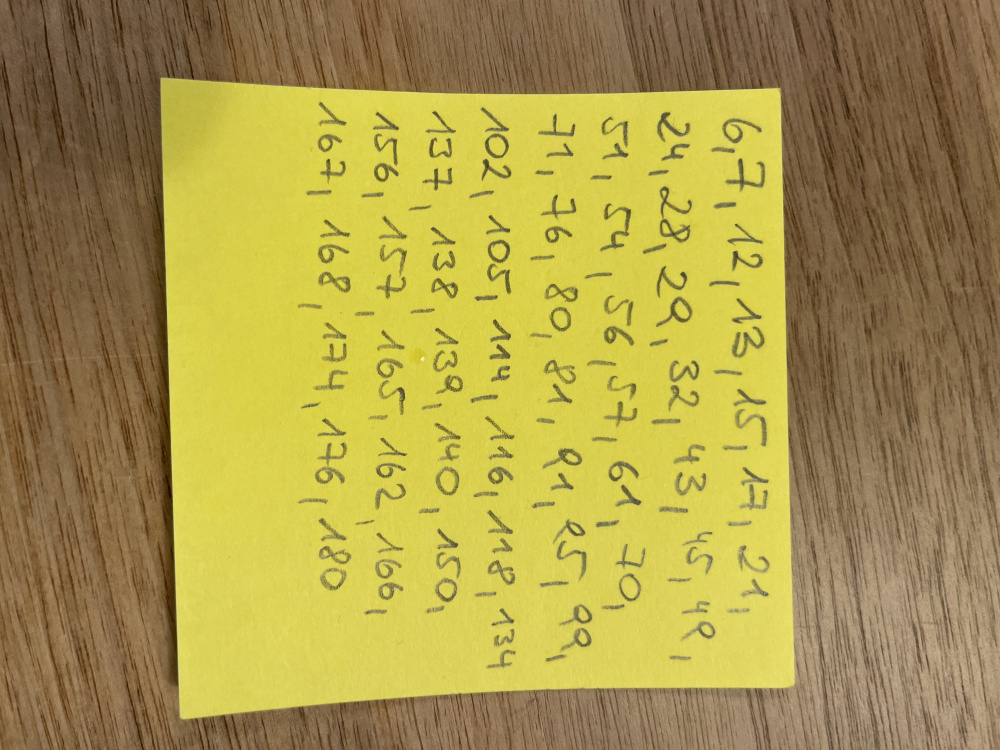 6, 7, 12, 13, 15, 17, 21,
24, 28, 29, 32, 43, 45, 49,
51, 54, 56, 57, 61, 70,
71, 76, 80, 81, 91, 95, 99,
102, 105, 114, 116, 118, 134
137, 138, 139, 140, 150,
156, 157, 165, 162, 166,
167, 168, 174, 176, 180